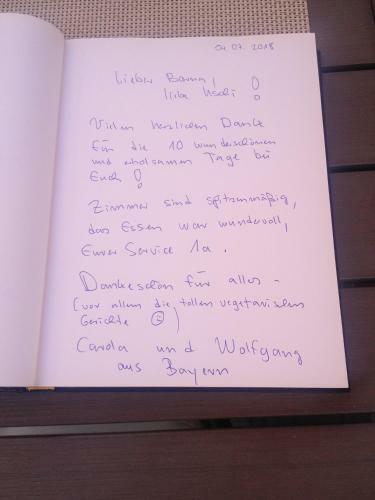 04.07.2018
Lieber Barna!
liebe Uschi!
Vielen herzlichen Danke
für die 10 wunderschönen
und erholsamen Tage bei
Euch!
Zimmer sind spitzenmäßig,
das Essen war wundervoll,
Eurer Service 1a.
Dankeschön für alles -
(vor allem die tollen vegetarischen
Gerichte ☺)
Carola und Wolfgang
aus Bayern